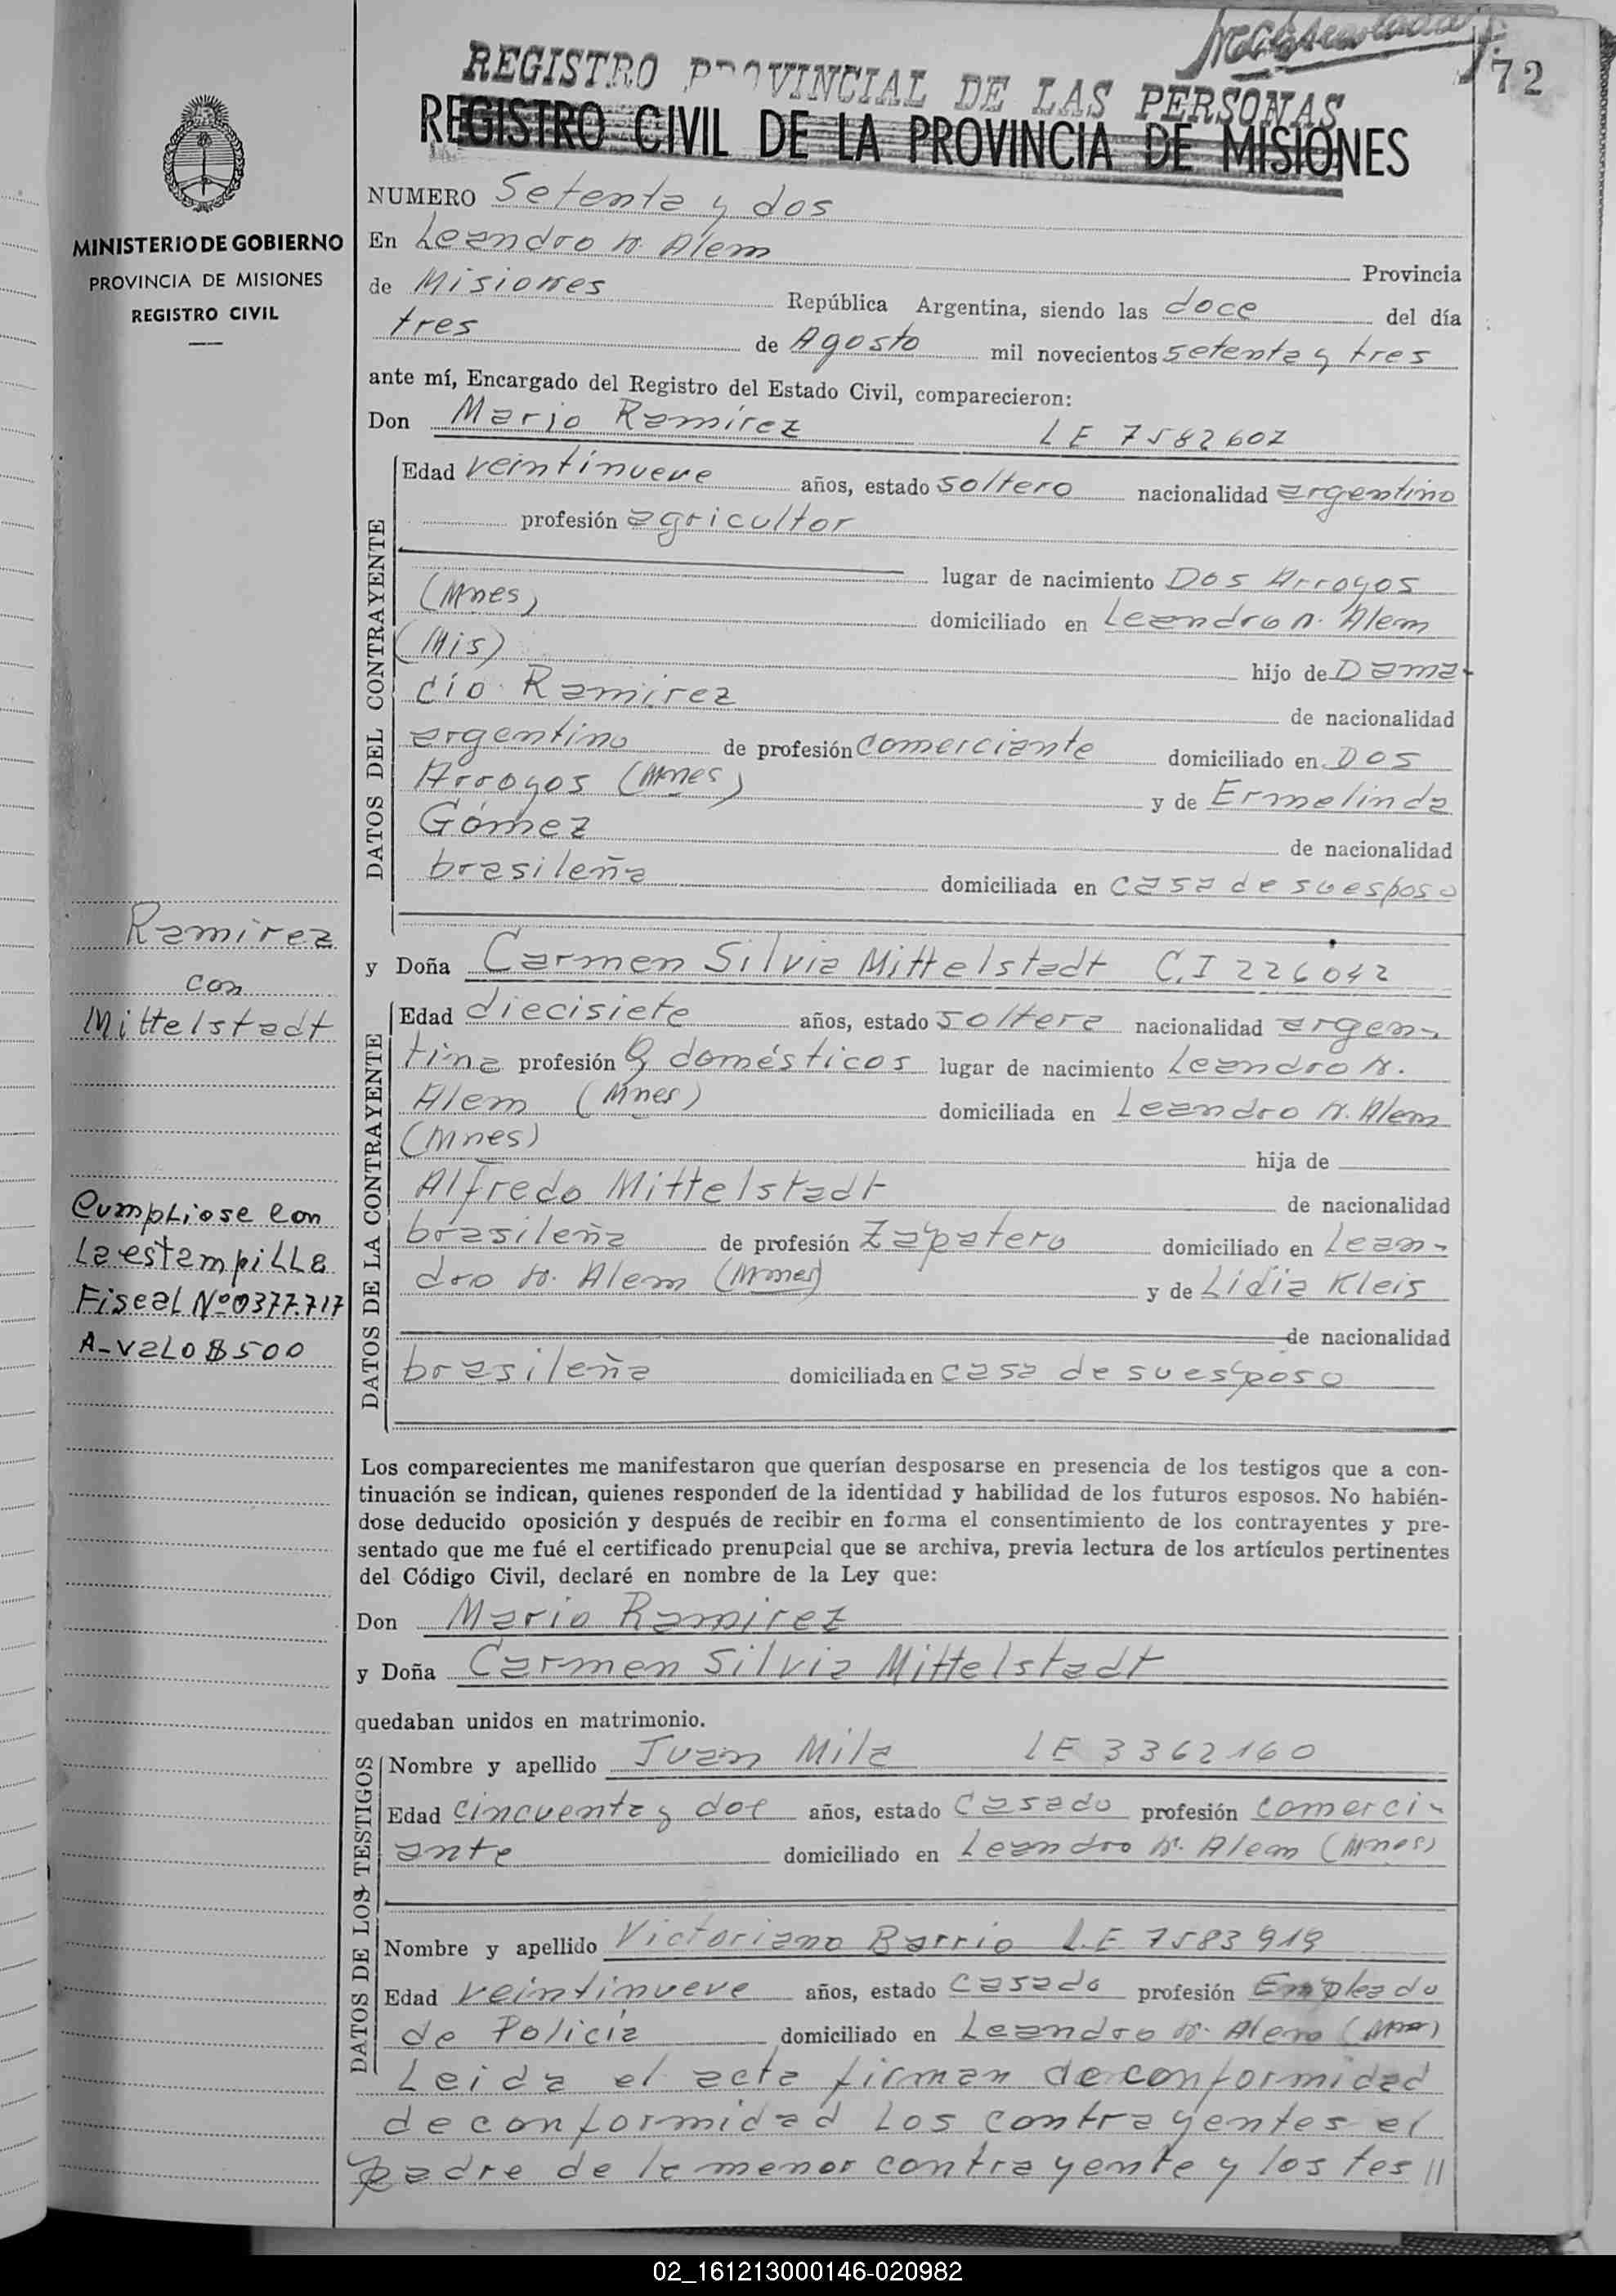 72
REGISTRO PROVINCIAL DE LAS PERSONAS
REGISTRO CIVIL DE LA PROVINCIA DE MISIONES
MINISTERIO DE GOBIERNO
PROVINCIA DE MISIONES
REGISTRO CIVIL
NUMERO Setenta y dos
En Leandro N. Alem Provincia
de Misiones República Argentina, siendo las doce del día
tres de Agosto mil novecientos setenta y tres
ante mí, Encargado del Registro del Estado Civil, comparecieron:
Don Mario Ramírez LE 7582607
DATOS DEL CONTRAYENTE
Edad veintinueve años, estado soltero nacionalidad argentino
profesión agricultor
lugar de nacimiento Dos Arroyos
(Mnes) domiciliado en Leandro N. Alem
(Mis) hijo de Dama-
cio Ramirez de nacionalidad
argentino de profesión comerciante domiciliado en Dos
Arroyos (Mnes) y de Ermelinda
Gómez de nacionalidad
brasileña domiciliada en casa de su esposo
Ramirez
con
Mittelstadt
y Doña Carmen Silvia Mittelstadt C.I 226042
DATOS DE LA CONTRAYENTE
Edad diecisiete años, estado soltera nacionalidad argen-
tina profesión Q domésticos lugar de nacimiento Leandro N.
Alem (Mnes) domiciliada en Leandro N. Alem
(Mnes) hija de
Alfredo Mittelstadt de nacionalidad
brasileña de profesión Zapatero domiciliado en Lean-
dro N. Alem (Mnes) y de Lidia Kleis
de nacionalidad
brasileña domiciliada en casa de su esposo
Cumpliose con
La estampilla
Fiscal Nº 0377.717
A-Valo $ 500
Los comparecientes me manifestaron que querían desposarse en presencia de los testigos que a con-
tinuación se indican, quienes responden de la identidad y habilidad de los futuros esposos. No habién-
dose deducido oposición y después de recibir en forma el consentimiento de los contrayentes y pre-
sentado que me fué el certificado prenupcial que se archiva, previa lectura de los artículos pertinentes
del Código Civil, declaré en nombre de la Ley que:
Don Mario Ramirez
y Doña Carmen Silvia Mittelstadt
quedaban unidos en matrimonio.
DATOS DE LOS TESTIGOS
Nombre y apellido Juan Mila LE 3362160
Edad cincuenta y dos años, estado Casado profesión comerci-
ante domiciliado en Leandro N. Alem (Mnes)
Nombre y apellido Victoriano Barrio L.E 7583919
Edad veintinueve años, estado casado profesión Empleado
de Policía domiciliado en Leandro N. Alem (Mnes)
Leida el acta firman de conformidad
de conformidad los contrayentes el
padre de la menor contrayente y los tes //
02_161213000146-020982